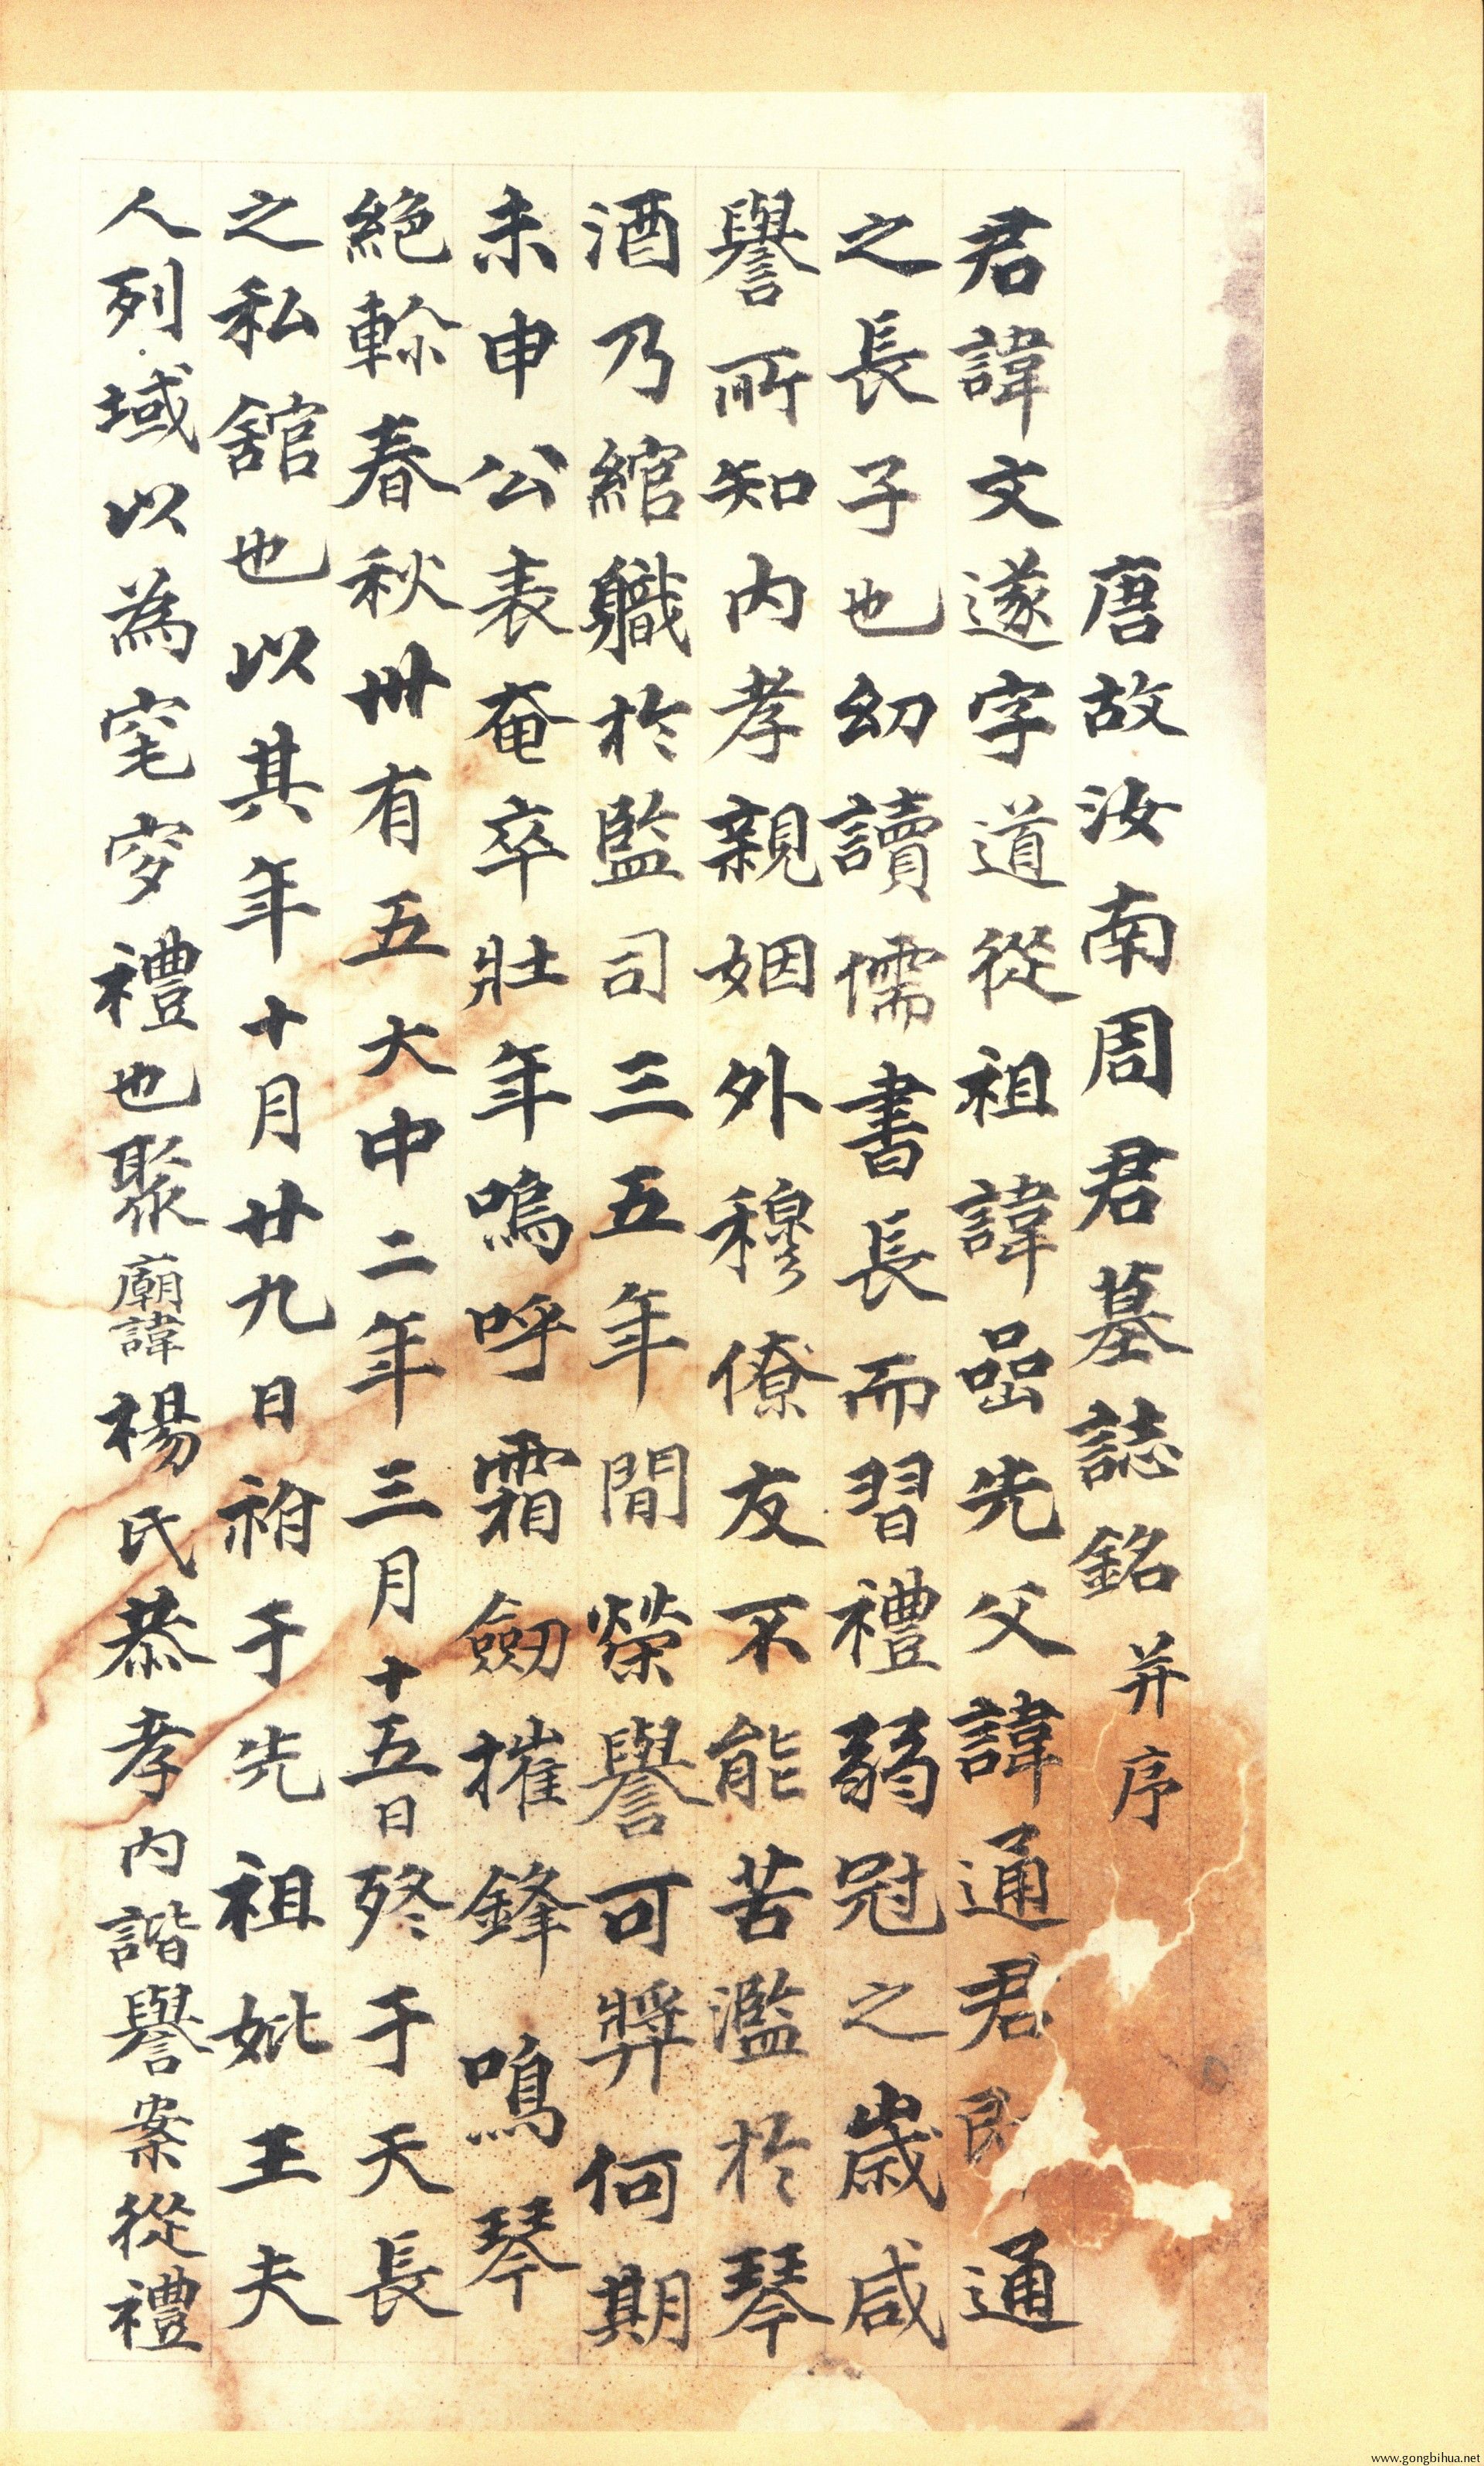 唐故汝南周君墓誌銘并序
君諱文遂字道從祖諱嵒先父諱通君即通
之長子也幼讀儒書長而習禮弱冠之歲咸
譽所知内孝親姻外穆僚友不能苦濫於琴
酒乃綰軄於監司三五年間榮譽可弉何期
未申公表奄卒壯年嗚呼霜劒摧鋒鳴琴
絶軫春秋卅有五大中二年三月十五日終于天長
之私舘也以其年十月廿九日祔于先祖妣王夫
人列域以為窀穸禮也聚廟諱楊氏恭孝内諧譽案從禮
www.gongbihua.net